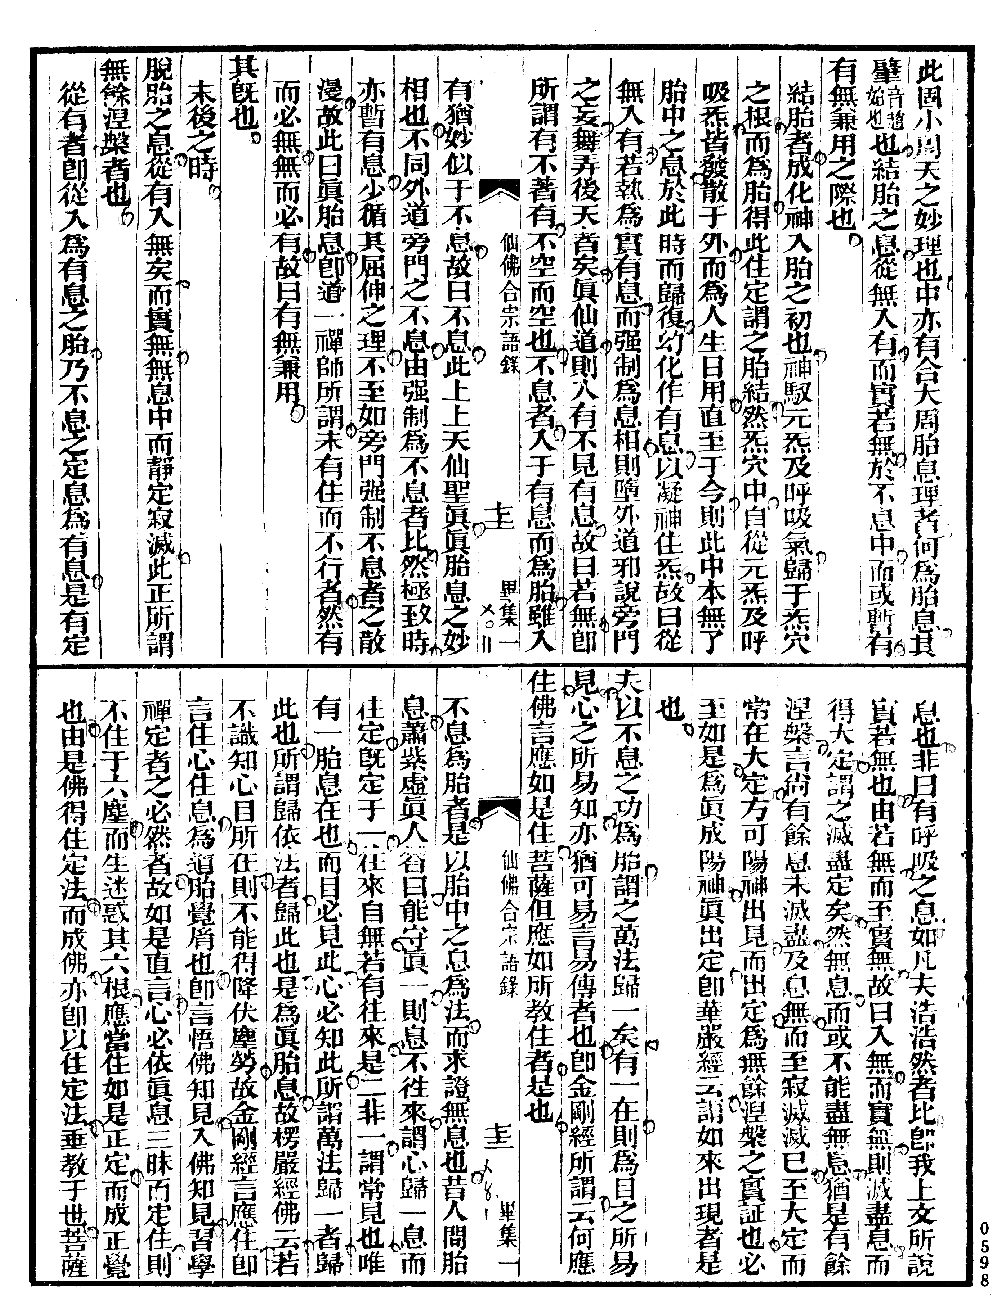 此固小周天之妙理也中亦有合大周胎息理者何為胎息其
肇音趙始也也結胎之息從無入有而實若無於不息中而或暫有
有無兼用之際也
結胎者成化神入胎之初也神馭元炁及呼吸氣歸于炁穴
之根而為胎得此住定謂之胎結然炁穴中自從元炁及呼
吸炁皆發散于外而為人生日用直至于今則此中本無了
胎中之息於此時而歸復幻化作有息以凝神住炁故曰從
無入有若執為實有息而强制為息相則墮外道邪說旁門
之妄舞弄後天者矣眞仙道則入有不見有息故曰若無卽
所謂有不著有不空而空也不息者入于有息而為胎雖入
仙佛合宗語錄 畢集一
有猶妙似于不息故曰不息此上上天仙聖眞眞胎息之妙
相也不同外道旁門之不息由强制為不息者比然極致時
亦暫有息少循其屈伸之理不至如旁門强制不息者之散
漫故此曰眞胎息卽道一禪師所謂未有住而不行者然有
而必無無而必有故曰有無兼用
其旣也
末後之時
脫胎之息從有入無矣而實無無息中而靜定寂滅此正所謂
無餘涅槃者也
從有者卽從入為有息之胎乃不息之定息為有息是有定
息也非曰有呼吸之息如凡夫浩浩然者比卽我上文所說
實若無也由若無而至實無故曰入無而實無則滅盡息而
得大定謂之滅盡定矣然無息而或不能盡無息猶是有餘
涅槃言尚有餘息未滅盡及息無而至寂滅滅已至大定而
常在大定方可陽神出見而出定為無餘涅槃之實証也必
至如是為眞成陽神眞出定卽華嚴經云謂如來出現者是
也
夫以不息之功為胎謂之萬法歸一矣有一在則為目之所易
見心之所易知亦猶可易言易傳者也卽金剛經所謂云何應
住佛言應如是住菩薩但應如所教住者是也
仙佛合宗語錄 畢集一
不息為胎者是以胎中之息為法而求證無息也昔人問胎
息蕭紫虛眞人答曰能守眞一則息不徃來謂心歸一息而
住定旣定于一徃來自無若有往來是二非一謂常見也唯
有一胎息在也而目必見此心必知此所謂萬法歸一者歸
此也所謂歸依法者歸此也是為眞胎息故楞嚴經佛云若
不識知心目所在則不能得降伏塵勞故金剛經言應住卽
言住心住息為道胎覺脣也卽言悟佛知見入佛知見習學
禪定者之必然者故如是直言心必依眞息三昧而定住則
不住于六塵而生迷惑其六根應當住如是正定而成正覺
也由是佛得住定法而成佛亦卽以住定法垂教于世菩薩
0598